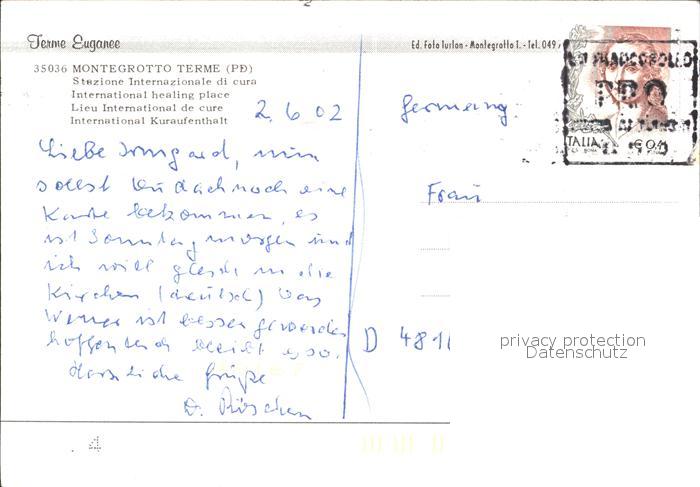 Terme Euganee
Ed. Foto Turlon - Montegrotto T. - Tel. 049
35036 MONTEGROTTO TERME (PD)
Stazione Internazionale di cura
International healing place
Lieu International de cure
International Kuraufenthalt
2.6.02
Germany
ITALIA
Liebe Irmgard, nun
sollst Du doch noch eine
Karte bekommen, es
ist Sonntag morgen und
ich will gleich in die
Kirchen (deutsch) Das
Wetter ist besser geworden
hoffentlich bleibt es so.
Herzliche Grüße
D. Röschen
Frau
D 481
privacy protection
Datenschutz
4